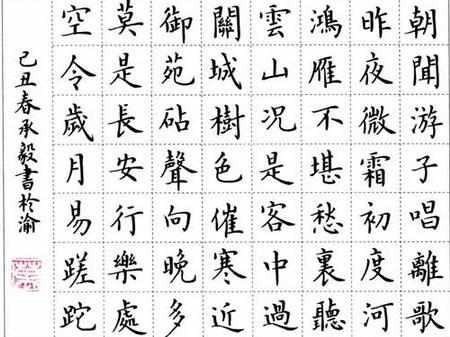 朝聞游子唱離歌
昨夜微霜初度河
鴻雁不堪愁裏聽
雲山況是客中過
關城樹色催寒近
御苑砧聲向晚多
莫是長安行樂處
空令歲月易蹉跎
己丑春承毅書於渝